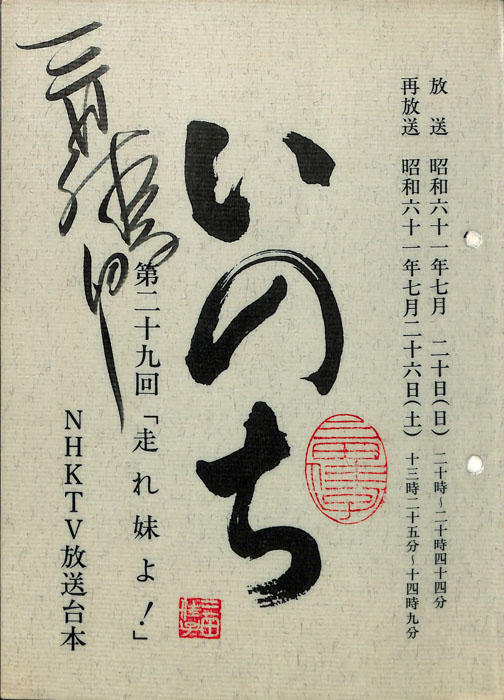 放送 昭和六十一年七月 二十日(日) 二十時〜二十時四十四分
再放送 昭和六十一年七月二十六日(土) 十三時二十五分〜十四時九分
いのち
第二十九回「走れ妹よ!」
NHKTV放送台本